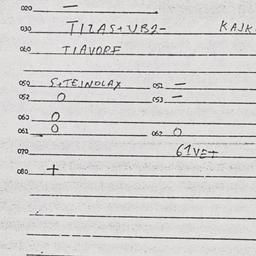 020 —
030 TIZAS+VB2- KAJK
040 TIAVOPF
050 S+TEINOLAX 051 —
052 O 053 —
060 O
061 O 062 O
070 61VE+
080 +